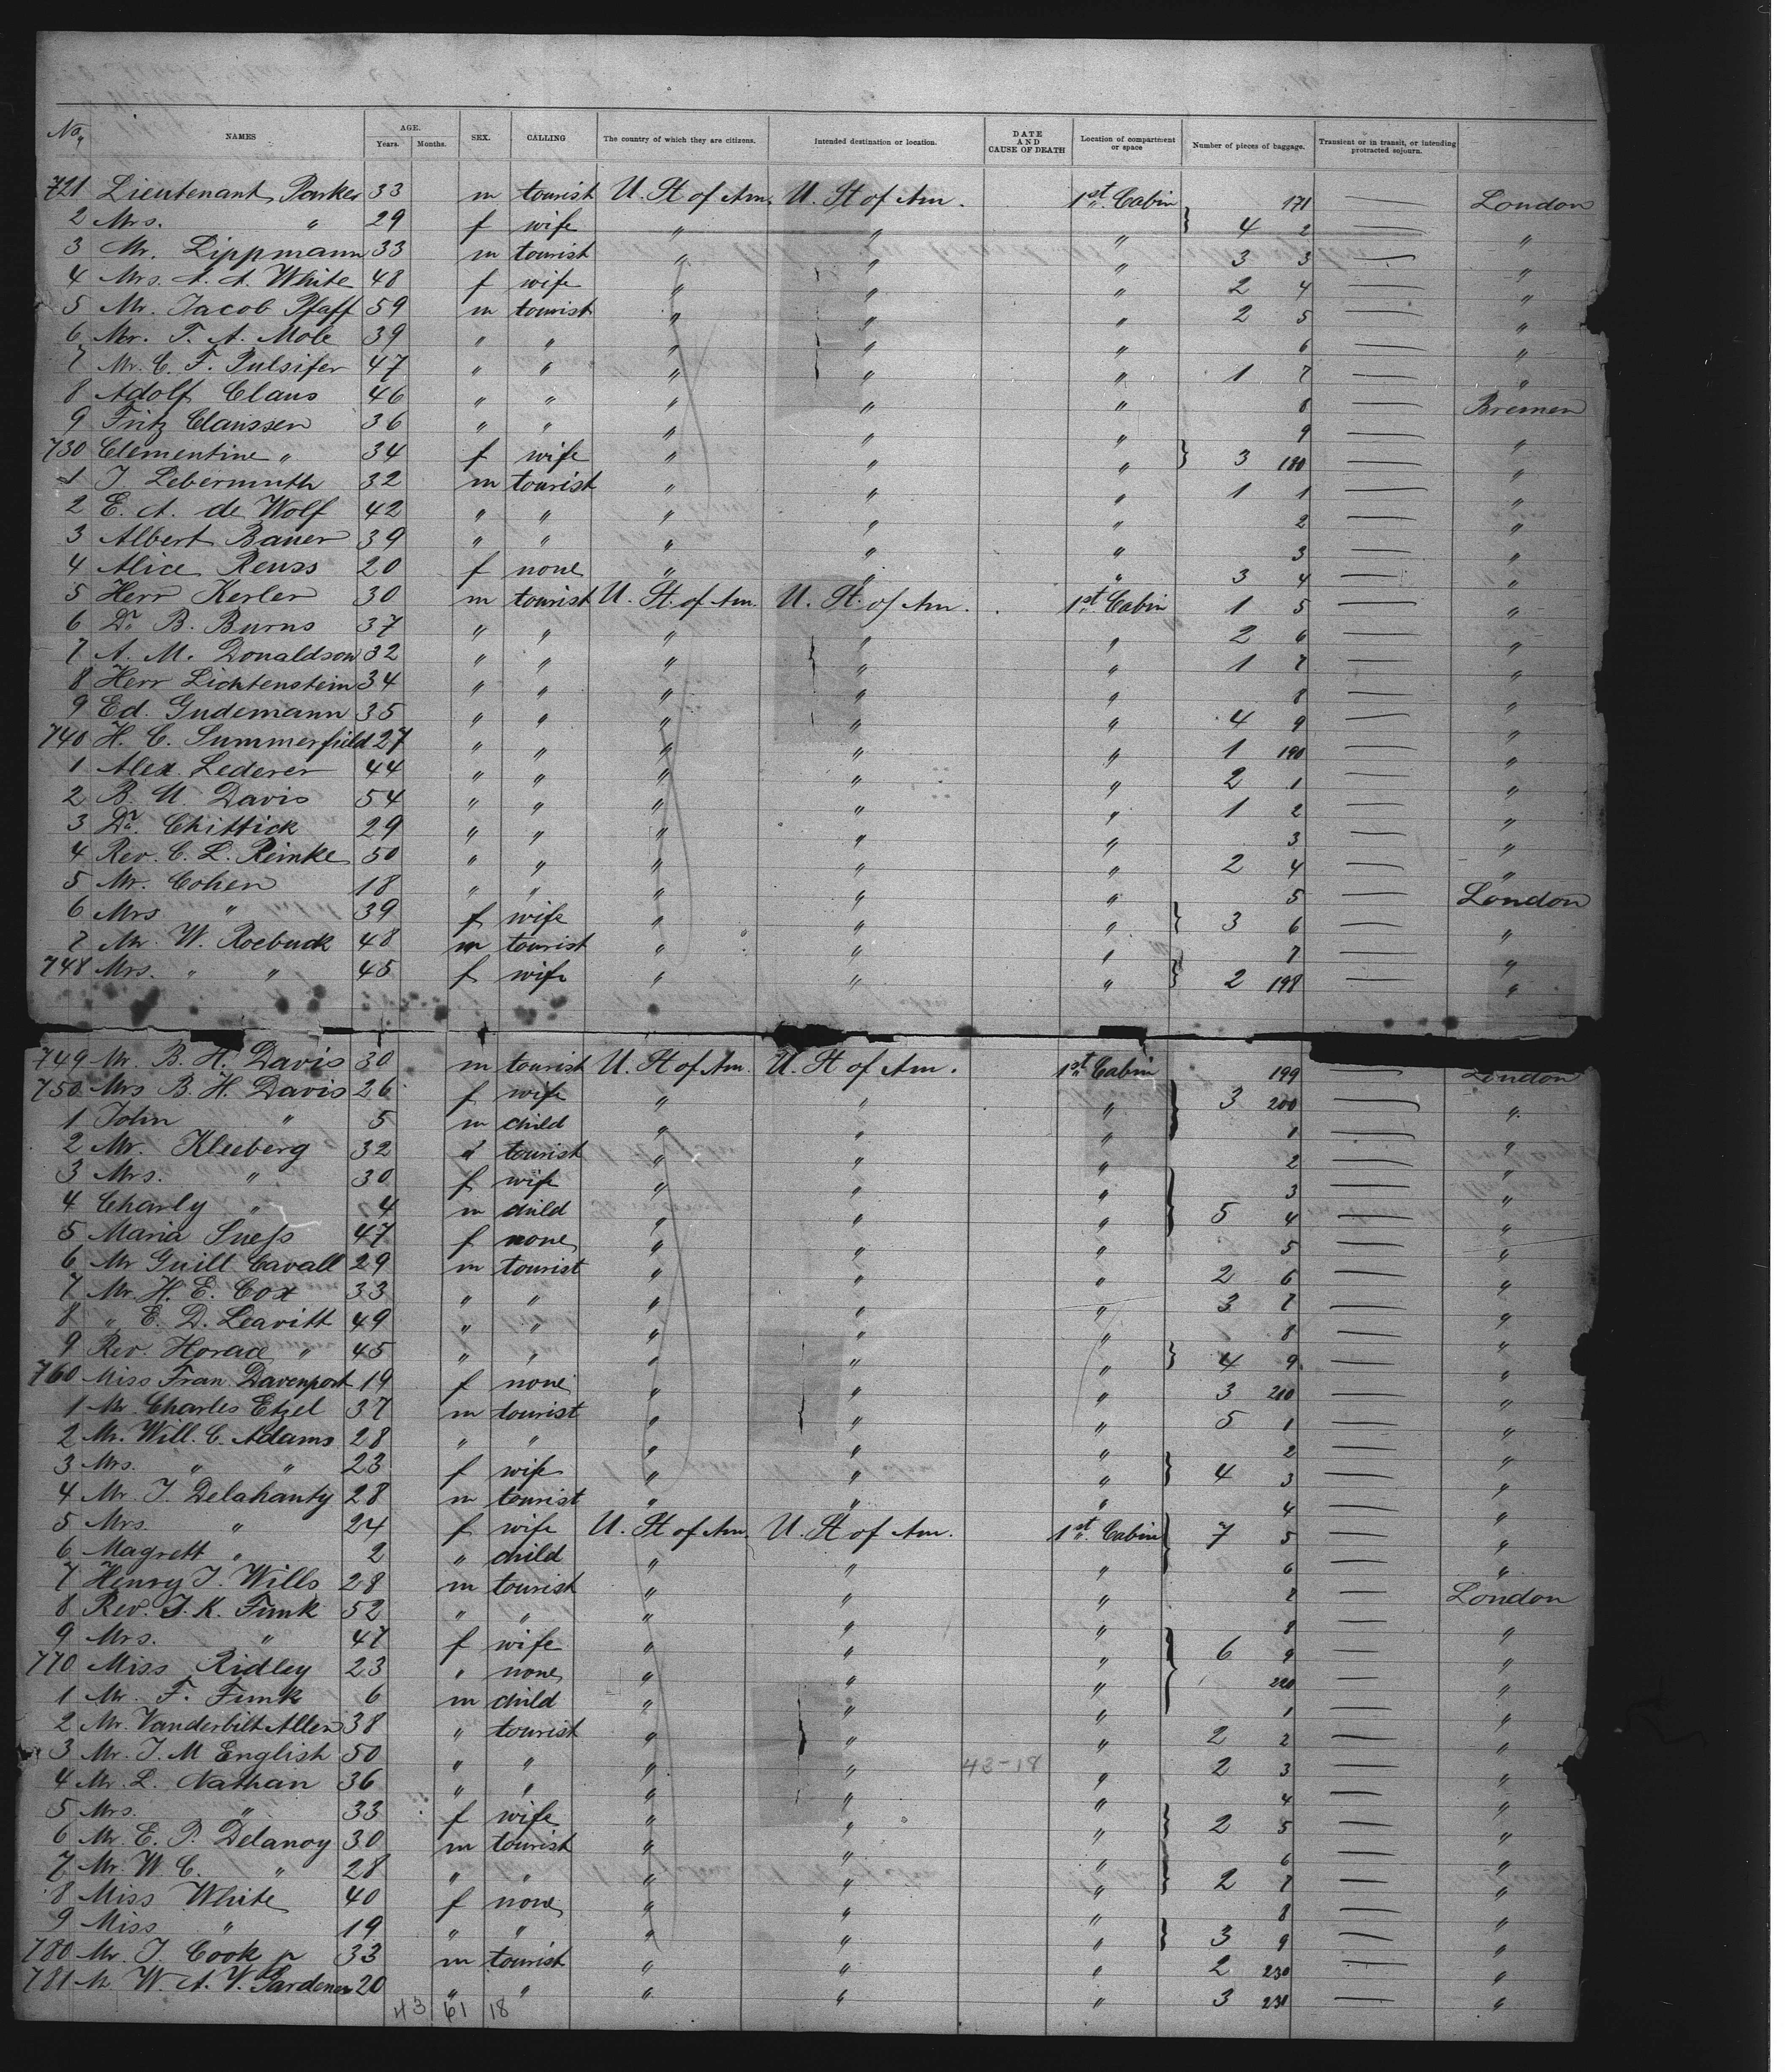 No. NAMES AGE. Years. Months. SEX. CALLING The country of which they are citizens. Intended destination or location. DATE AND CAUSE OF DEATH Location of compartment or space Number of pieces of baggage. Transient or in transit, or intending protracted sojourn.
721 Lieutenant Parker 33 m tourist U. St of Am. U. St of Am. 1st Cabin 171 — London
2 Mrs. " 29 f wife " " " } 4 2 — "
3 Mr. Lippmann 33 m tourist " " " 3 3 — "
4 Mrs. A. A. White 48 f wife " " " 2 4 — "
5 Mr. Jacob Pfaff 59 m tourist " " " 2 5 — "
6 Mr. T. A. Mole 39 " " " " " 6 — "
7 Mr. C. F. Pulsifer 47 " " " " " 1 7 — "
8 Adolf Claus 46 " " " " " 8 — Bremen
9 Fritz Claussen 36 " " " " " 9 — "
730 Clementine " 34 f wife " " " } 3 180 — "
1 J. Lebermuth 32 m tourist " " " 1 1 — "
2 E. A. de Wolf 42 " " " " " 2 — "
3 Albert Bauer 39 " " " " " 3 — "
4 Alice Reuss 20 f none " " " 3 4 — "
5 Herr Kerler 30 m tourist U. St. of Am. U. St. of Am. 1st Cabin 1 5 — "
6 Dr B. Burns 37 " " " " " 2 6 — "
7 A. M. Donaldson 32 " " " " " 1 7 — "
8 Herr Lichtenstein 34 " " " " " 8 — "
9 Ed. Gudemann 35 " " " " " 4 9 — "
740 H. C. Summerfield 27 " " " " " 1 190 — "
1 Alex. Lederer 44 " " " " " 2 1 — "
2 B. U. Davis 54 " " " " " 1 2 — "
3 Dr. Chittick 29 " " " " " 3 — "
4 Rev. C. L. Reinke 50 " " " " " 2 4 — "
5 Mr. Cohen 18 " " " " " 5 — London
6 Mrs " 39 f wife " " " } 3 6 — "
7 Mr. W. Roebuck 48 m tourist " " " 7 — "
748 Mrs. " " 45 f wife " " " } 2 198 — "
749 Mr. B. H. Davis 30 m tourist U. St of Am. U. St of Am. 1st Cabin 199 — London
750 Mrs B. H. Davis 26 f wife " " " 3 200 — "
1 John " 5 m child " " " 1 — "
2 Mr. Kleeberg 32 " tourist " " " 2 — "
3 Mrs. " 30 f wife " " " 3 — "
4 Charly " 4 m child " " " 5 4 — "
5 Maria Suess 47 f none " " " 5 — "
6 Mr Guill Cavall 29 m tourist " " " 2 6 — "
7 Mr. H. E. Cox 33 " " " " " 3 7 — "
8 " E. D. Leavitt 49 " " " " " 8 — "
9 Rev. Horace " 45 " " " " " } 4 9 — "
760 Miss Fran. Davenport 19 f none " " " 3 210 — "
1 Mr. Charles Etzel 37 m tourist " " " 5 1 — "
2 Mr. Will. C. Adams 28 " " " " " 2 — "
3 Mrs. " " 23 f wife " " " } 4 3 — "
4 Mr. J. Delahanty 28 m tourist " " " 4 — "
5 Mrs. " 24 f wife U. St of Am. U. St of Am. 1st Cabin 7 5 — "
6 Magrett " 2 " child " " " 6 — "
7 Henry J. Wills 28 m tourist " " " 7 — London
8 Rev. I. K. Funk 52 " " " " " 8 — "
9 Mrs. " 47 f wife " " " 6 9 — "
770 Miss Ridley 23 " none " " " 220 — "
1 Mr. F. Funk 6 m child " " " 1 — "
2 Mr. Vanderbilt Allen 38 " tourist " " " 2 2 — "
3 Mr. J. M English 50 " " " " 43-18 " 2 3 — "
4 Mr. L. Nathan 36 " " " " " 4 — "
5 Mrs. " 33 f wife " " " } 2 5 — "
6 Mr. E. P. Delanoy 30 m tourist " " " 6 — "
7 Mr. W. C. " 28 " " " " " } 2 7 — "
8 Miss White 40 f none " " " 8 — "
9 Miss " 19 " " " " " } 3 9 — "
780 Mr. J. Cook 33 m tourist " " " 2 230 — "
781 Mr W. A. V. Gardener 20 " " " " " 3 231 — "
43 61 18